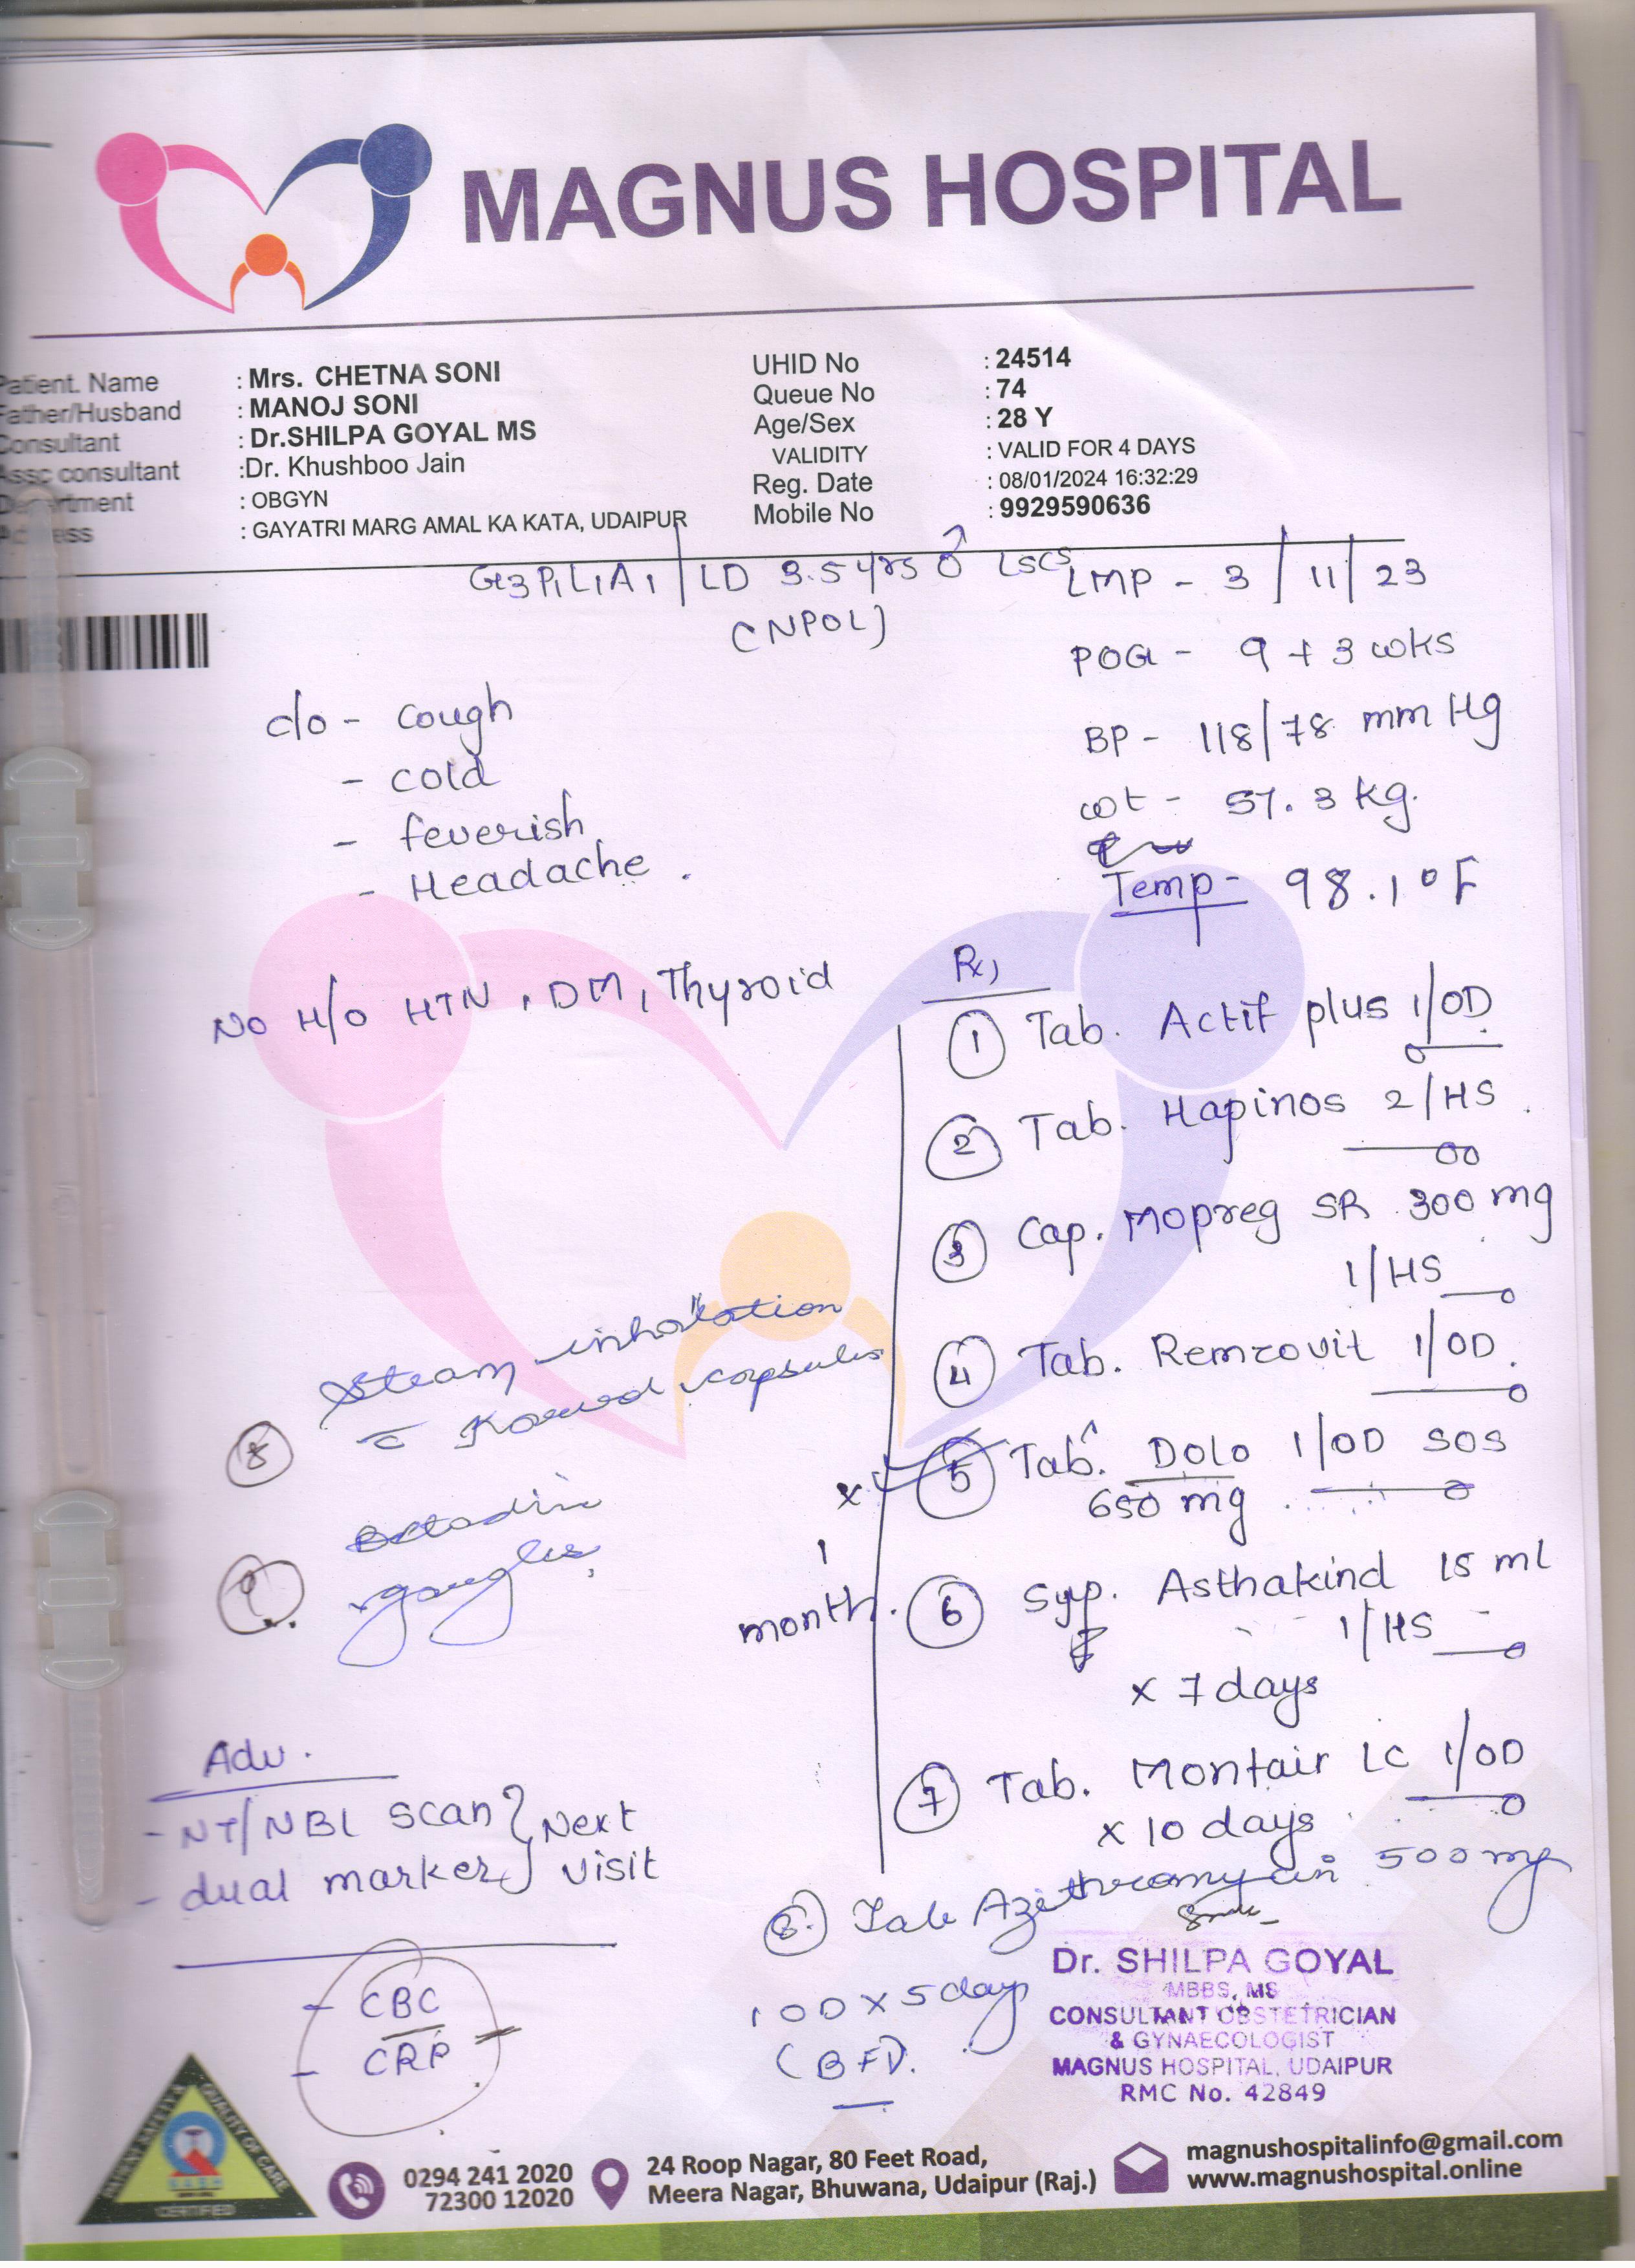 MAGNUS HOSPITAL
Patient. Name : Mrs. CHETNA SONI
Father/Husband : MANOJ SONI
Consultant : Dr.SHILPA GOYAL MS
Assc consultant :Dr. Khushboo Jain
Department : OBGYN
Address : GAYATRI MARG AMAL KA KATA, UDAIPUR
UHID No : 24514
Queue No : 74
Age/Sex : 28 Y
VALIDITY : VALID FOR 4 DAYS
Reg. Date : 08/01/2024 16:32:29
Mobile No : 9929590636
G3P1L1A1 / LD 3.5 yrs ♂ LSCS
(NPOL)
LMP - 3/11/23
POG - 9 + 3 wks
BP - 118/78 mm Hg
wt - 57.3 kg.
Temp - 98.1°F
c/o - cough
- cold
- feverish
- Headache.
No H/o HTN, DM, Thyroid
Rx,
1 Tab. Actif plus 1/OD
2 Tab. Hapinos 2/HS.
3 Cap. Mopreg SR 300 mg
1/HS
4 Tab. Remzovit 1/OD.
5 Tab. Dolo 1/OD SOS
650 mg
6 Syp. Asthakind 15 ml
1/HS
x 7 days
7 Tab. Montair LC 1/OD
x 10 days
8. Tab Azithromycin 500 mg
1 OD x 5 day
(BFD.
x 1
month.
8 Steam inhalation
c̄ capsules
9 Betadin
gargles,
Adv.
- NT/NBL scan } Next
- dual marker } visit
- CBC
- CRP
Dr. SHILPA GOYAL
MBBS, MS
CONSULTANT OBSTETRICIAN
& GYNAECOLOGIST
MAGNUS HOSPITAL, UDAIPUR
RMC No. 42849
PATIENT SAFETY & QUALITY OF CARE
CERTIFIED
0294 241 2020
72300 12020
24 Roop Nagar, 80 Feet Road,
Meera Nagar, Bhuwana, Udaipur (Raj.)
magnushospitalinfo@gmail.com
www.magnushospital.online